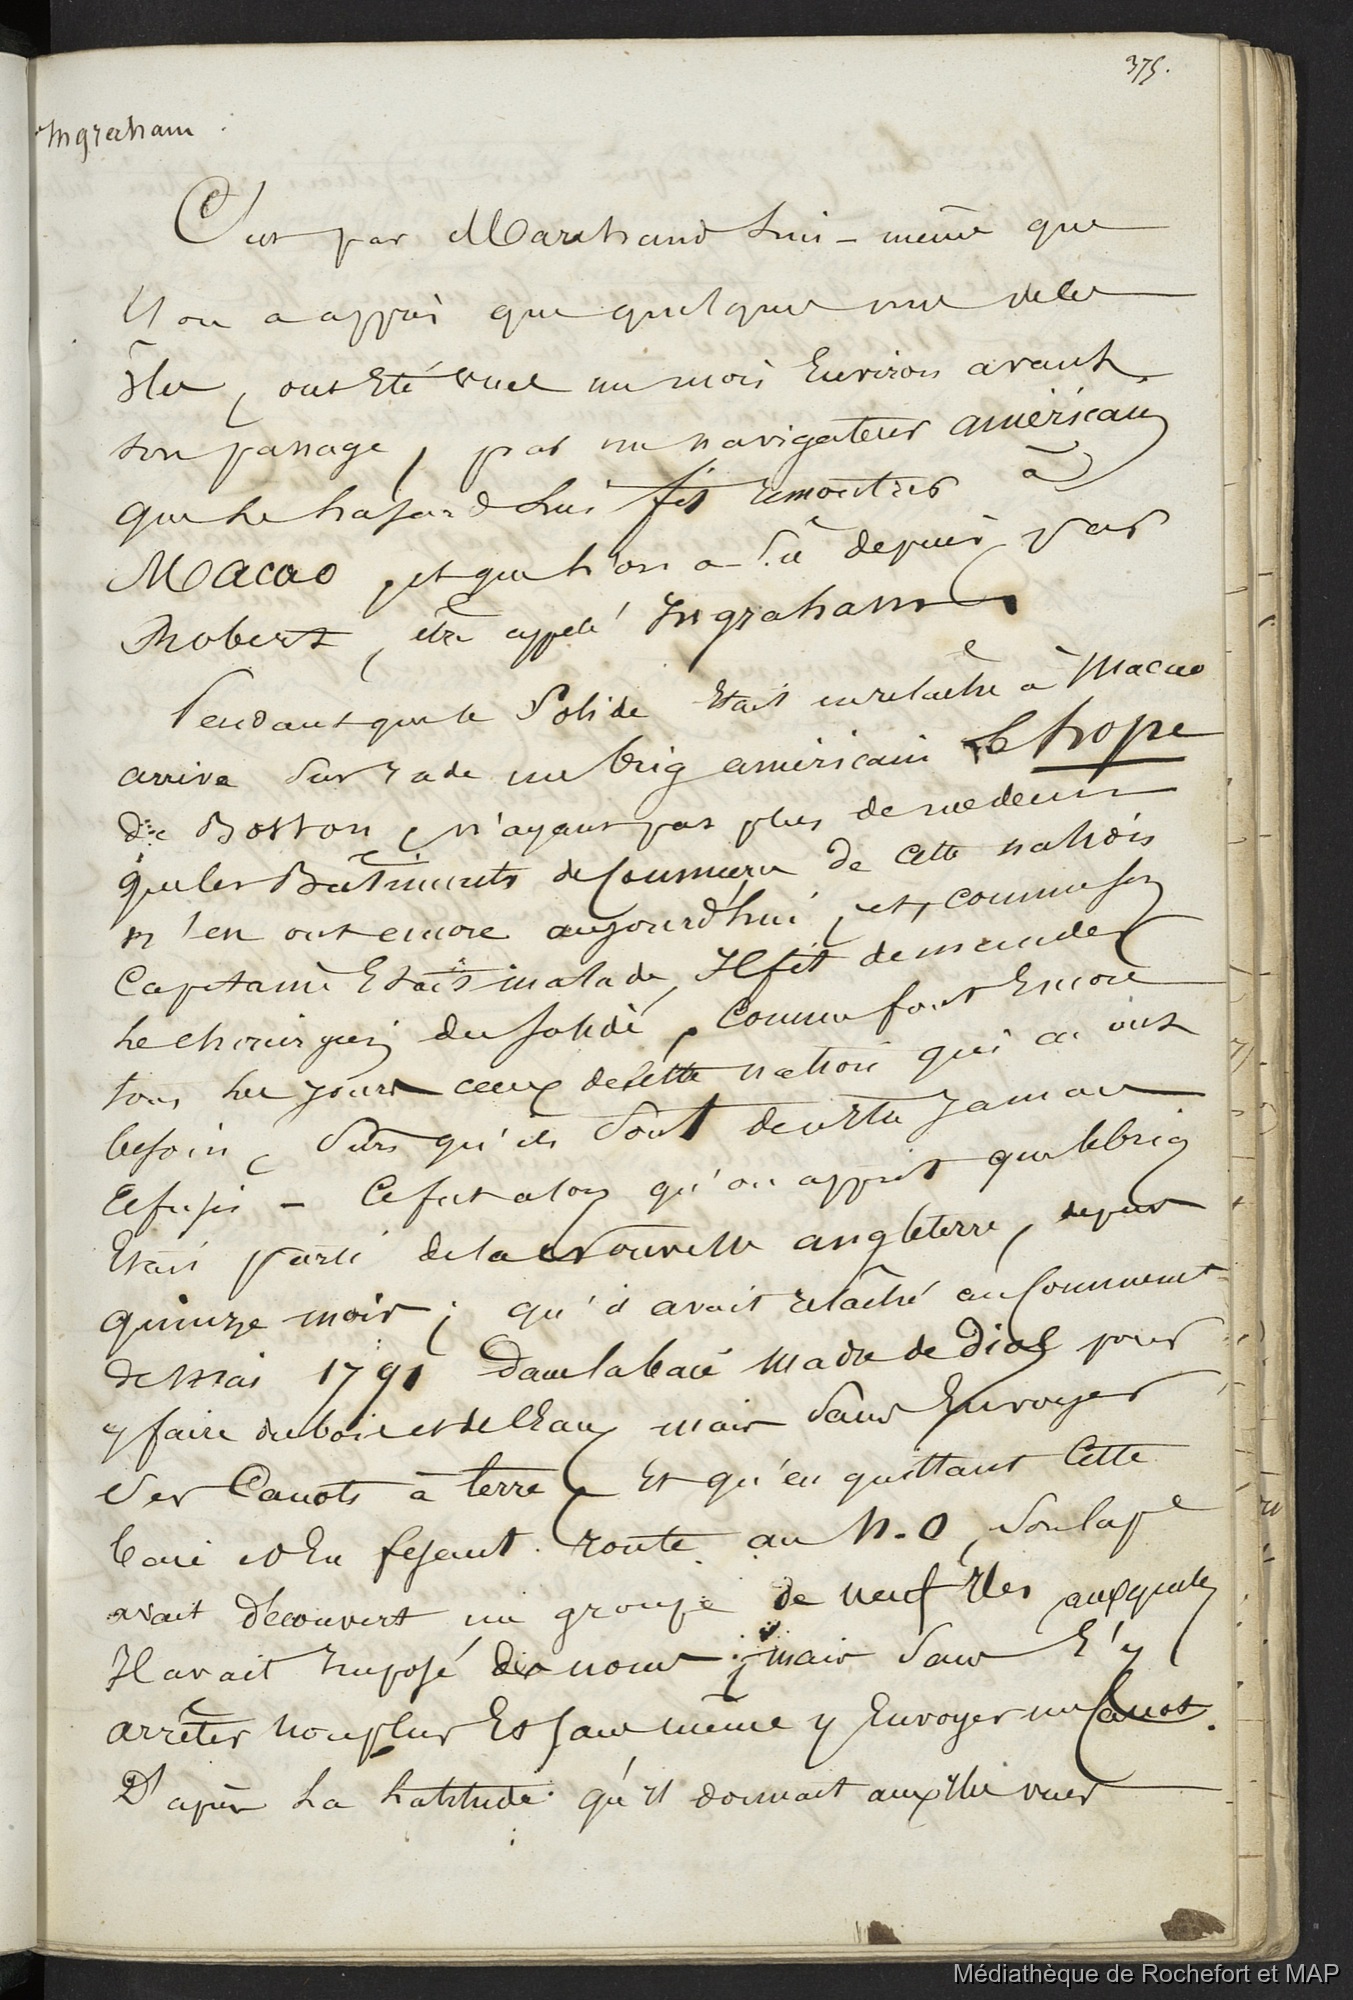 375.
Ingraham
C'est par Marchand lui-même que
l'on a appris que quelques unes de ces
Îles, ont été vues un mois Environ avant
son passage, par un navigateur américain
que le hasard lui fit rencontrer à
Macao, et que l'on a sû depuis, par
Robert, être appelé Ingraham.
Pendant que le Solide Etait en relâche à Macao
arriva sur rade un brig américain le hope
de Boston, n'ayant pas plus de medecin
que les Bâtiments de Commerce de cette nation
n'en ont encore aujourd'hui, et, comme son
Capitaine Etait malade, Il fit demander
le chirurgien du Solide, Comme font Encore
tous les jours ceux de cette nation qui en ont
besoin, surs qu'ils sont de n'être jamais
Refusés - Ce fut alors qu'on apprit que le brig
Etait parti de la Nouvelle angleterre, depuis
quinze mois; qu'il avait relâché au Commencement
de Mai 1791 Dans la baie Madre de Dios pour
y faire du bois et de l'Eau, mais sans Envoyer
ses Canots à terre, Et qu'en quittant Cette
baie et En fesant route au N.O, son Cape
avait découvert un groupe de neuf Iles auxquelles
Il avait Imposé des noms; mais sans s'y
arrêter non plus Et sans même y Envoyer un Canot.
D'après la latitude qu'il donnait aux Iles vues
Médiathèque de Rochefort et MAP